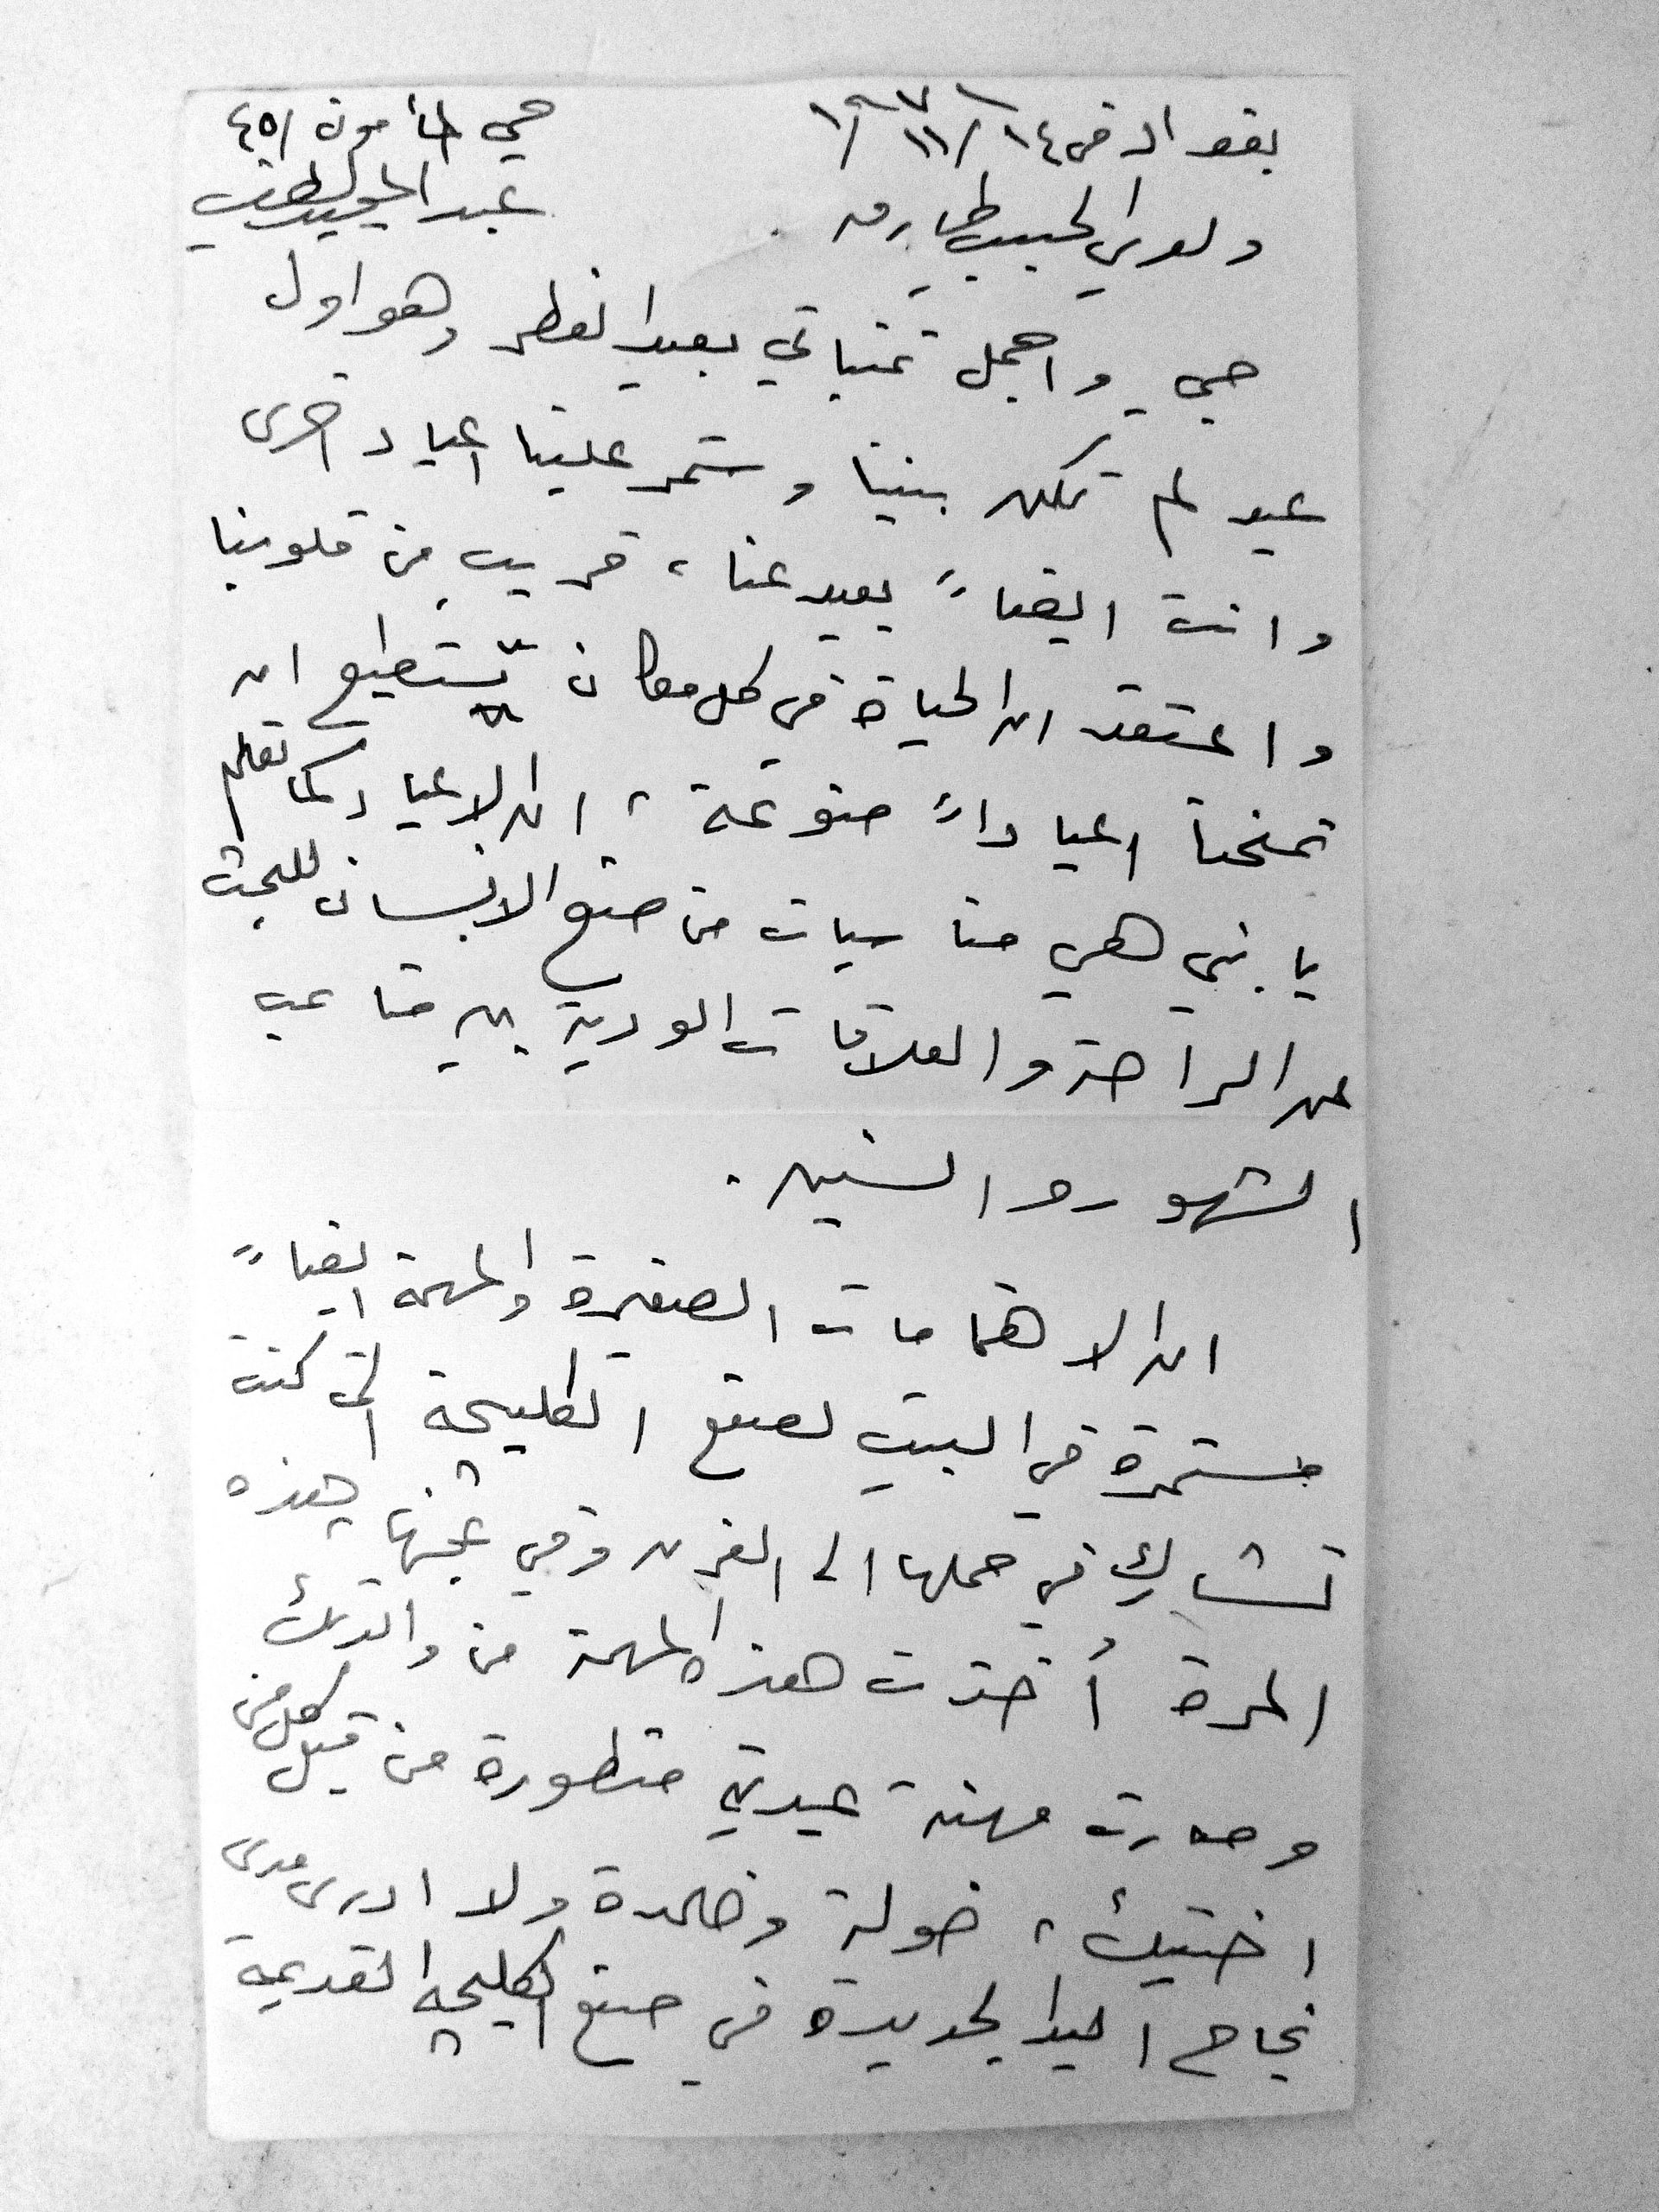 بغداد في ١٤/ ١١/ ١٩٧١
حي المأمون ٤٥١
عبد الحميد
ولدي الحبيب طارق .
حبي واجمل تمنياتي بعيد الفطر وهو اول
عيد لم تكن بيننا وستمر علينا اعياد اخرى
وانت ايضاً بعيد عنا ، قريب من قلوبنا
واعتقد ان الحياة في كل مكان تستطيع ان
تمنحنا اعياداً منوعة ، ان الاعياد كما تعلم
يا بني هي مناسبات من صنع الانسان للبحث
عن الراحة والعلاقات الودية بين متاعب
الشهور والسنين .
ان الاهتمامات الصغيرة والمهمة ايضاً
مستمرة في البيت لصنع الكليچة التي كنت
تشارك في حملها الى الفرن وفي عجنها هذه
المرة أخذت هذه المهمة من والدتك
وصارت مهنة عيدية متطورة من قبل كل من
اختيك ، خولة وخلدة ولا ادري مدى
نجاح اليد الجديدة في صنع الكليچه القديمة